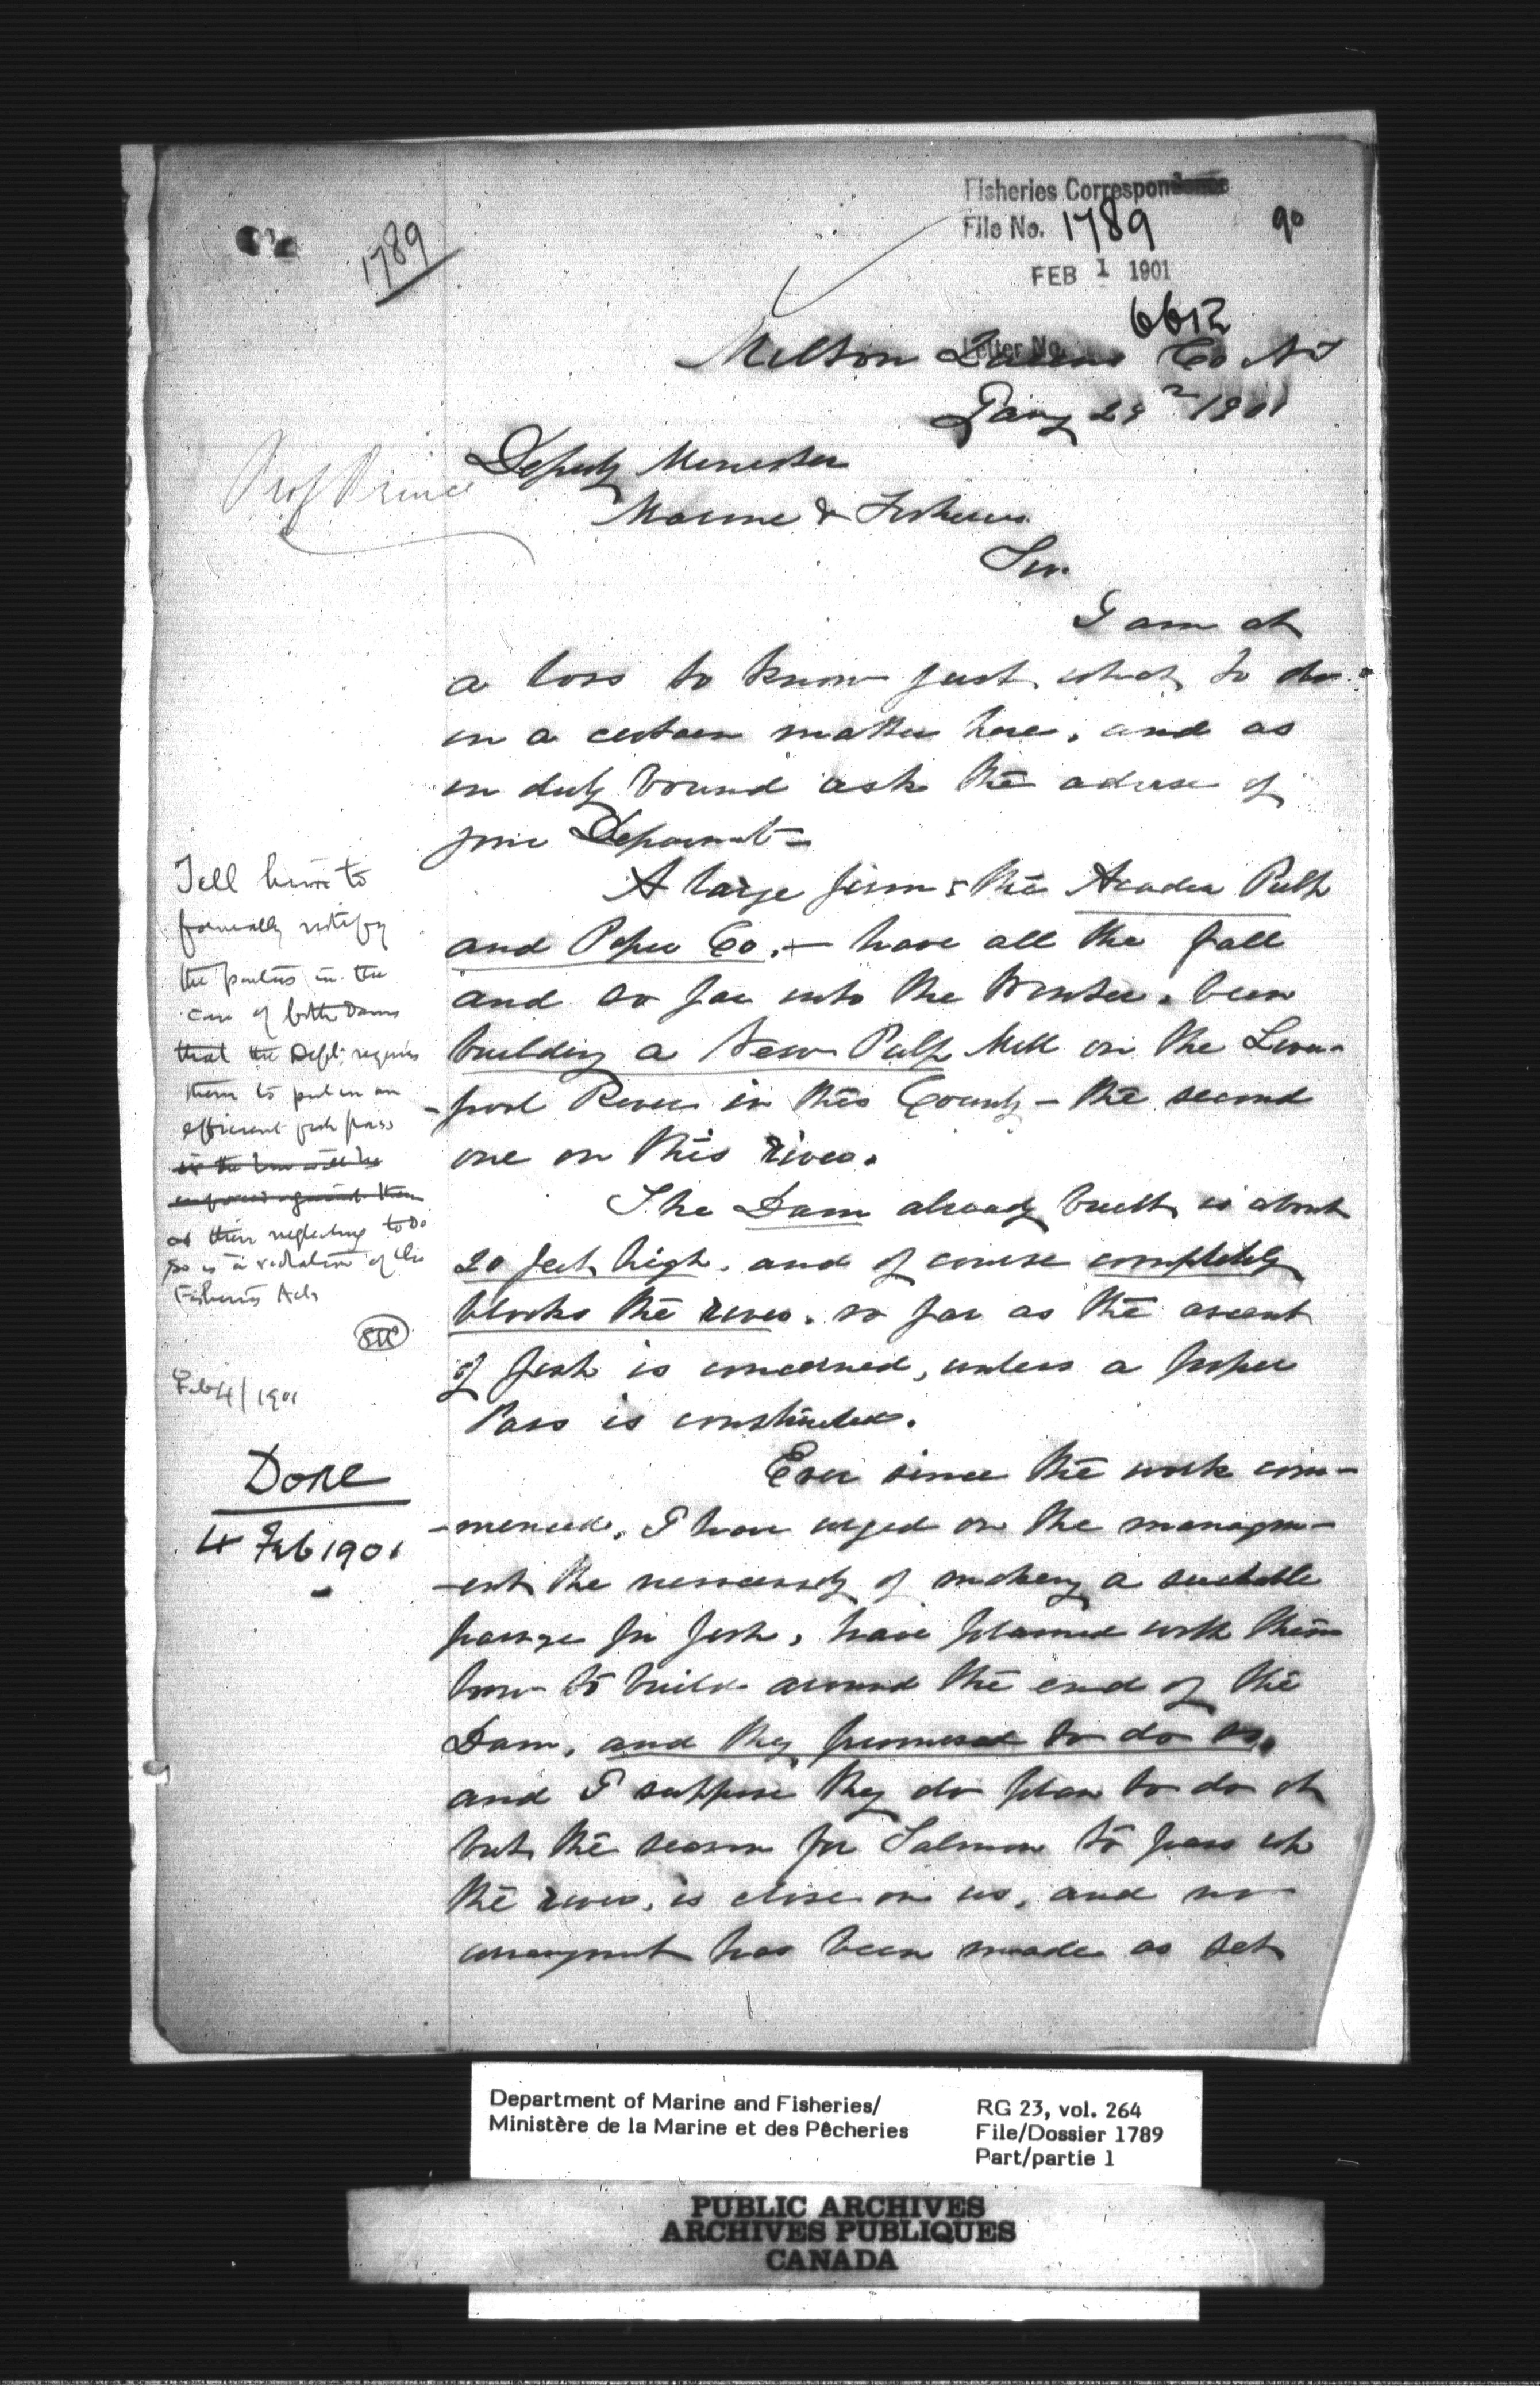 Fisheries Correspondence
File No. 1789
90
1789
FEB 1 1901
6612
Letter No.
Milton Queens Co NS
Jany 29 1901
Prof Prince
Deputy Minister
Marine & Fisheries
Sir
I am at
a loss to know just what to do
in a certain matter here, and as
in duty bound ask the advise of
your Department -
A large firm, the Acadia Pulp
and Paper Co. - have all the fall
and so far into the Winter, been
building a New Pulp Mill on the Liver-
-pool River in this County - the second
one on this river.
The Dam already built is about
20 feet high, and of course completely
blocks the river, so far as the ascent
of fish is concerned, unless a proper
Pass is constructed.
Ever since the work com-
-menced, I have urged on the managm-
-ent the nescessity of making a suitable
passage for fish, have planned with them
how to build around the end of the
Dam, and they promised to do so,
and I suppose they do plan to do it
but the season for Salmon to pass up
the river, is close on us, and no
arrangment has been made as yet
1
Tell him to
formally notify
the parties in the
case of both Dams
that the Dept. requires
them to put in an
efficient fish pass
or the law will be
enforced against them
as their neglecting to do
so is a violation of the
Fisheries Act
Feb 4/1901
Done
4 Feb 1901
Department of Marine and Fisheries/
Ministère de la Marine et des Pêcheries
RG 23, vol. 264
File/Dossier 1789
Part/partie 1
PUBLIC ARCHIVES
ARCHIVES PUBLIQUES
CANADA